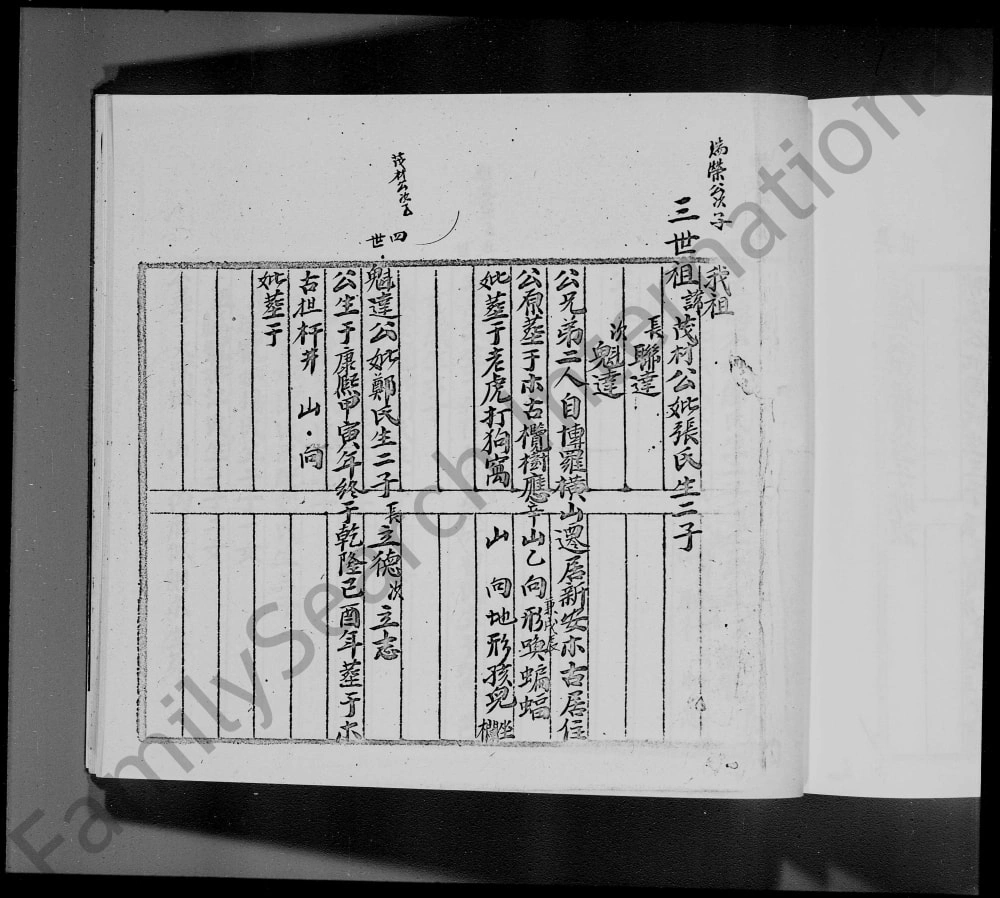 瑞榮公次子
我祖
三世祖諱茂材公妣張氏生二子
長聯達
次魁達
公兄弟二人自博羅橫山遷居新安亦古居住
公原葬于亦古欖樹應辛山乙向形喚蝙蝠
妣葬于老虎打狗寓 山 向地形孩兒坐欄
茂材公次子
四世
魁達公妣鄭氏生二子長立德次立志
公生于康熙甲寅年終于乾隆己酉年葬于亦
古担杆井 山 向
妣葬于
FamilySearch International